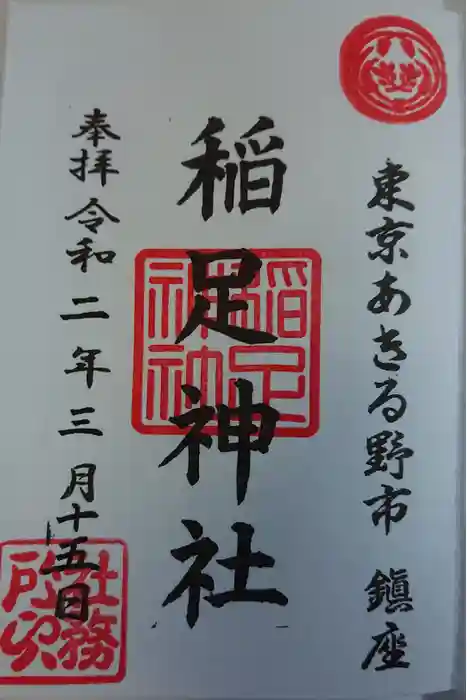 東京あきる野市 鎮座
稲足神社
奉拝 令和二年三月十五日
稲足神社
社務所印